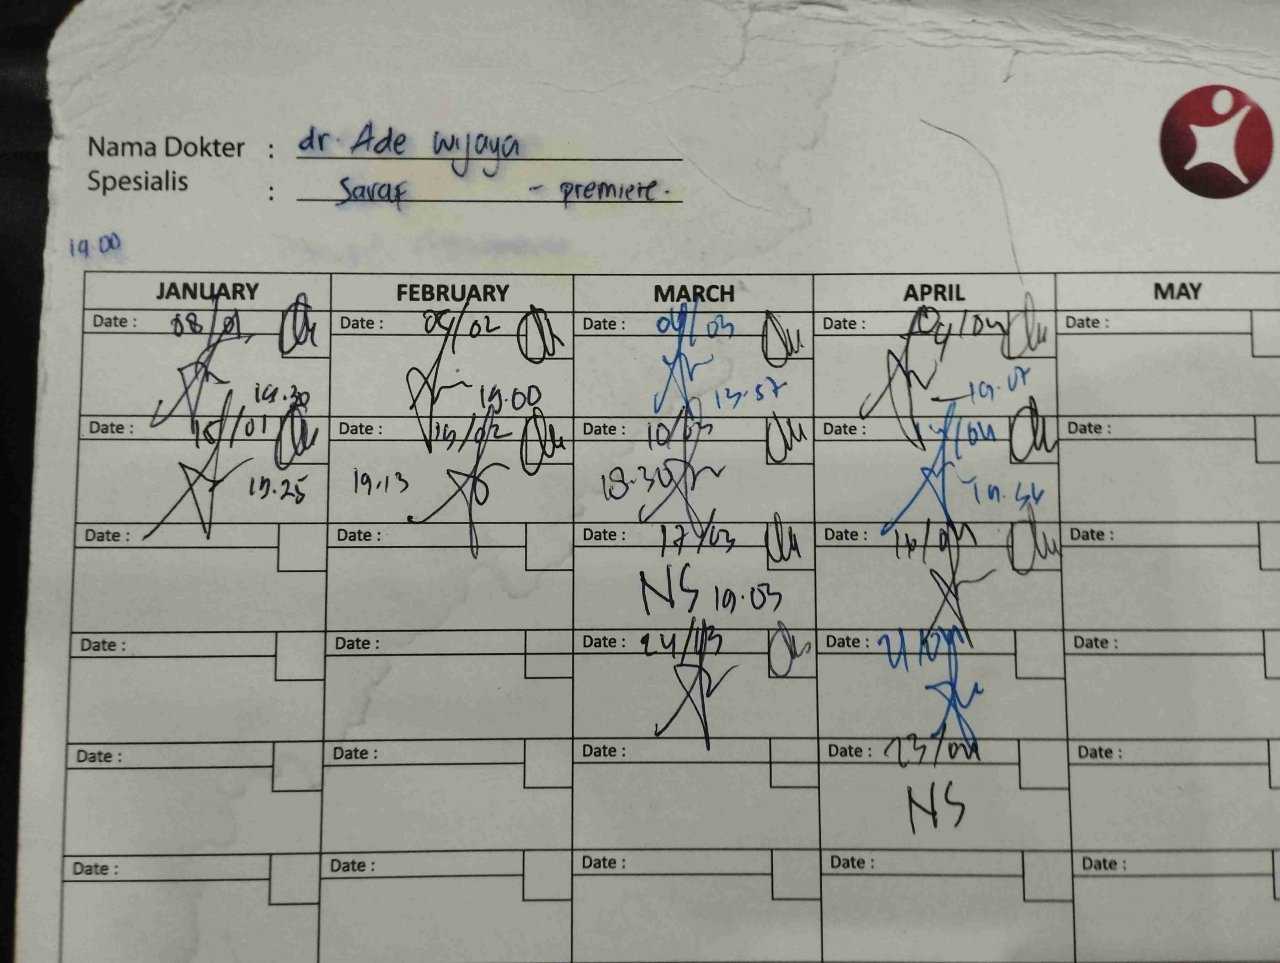 Nama Dokter : dr. Ade Wijaya
Spesialis : Saraf - premiere.
19.00
JANUARY FEBRUARY MARCH APRIL MAY
Date : 08/01 Date : 05/02 Date : 04/03 Date : 09/04 Date :
19.30 19.00 19.57 19.07
Date : 15/01 Date : 19/02 Date : 10/03 Date : /04 Date :
19.25 19.13 18.30
Date : Date : Date : 17/03 Date : 16/04 Date :
NS 19.03
Date : Date : Date : 24/03 Date : 21/04 Date :
Date : Date : Date : Date : 23/04 Date :
NS
Date : Date : Date : Date : Date :